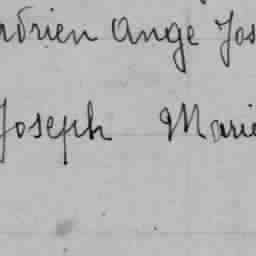 adrien Ange Jos
Joseph Marie